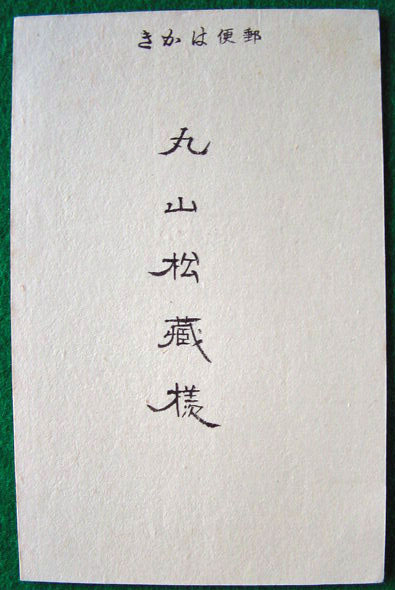 きかは便郵
丸山松藏様